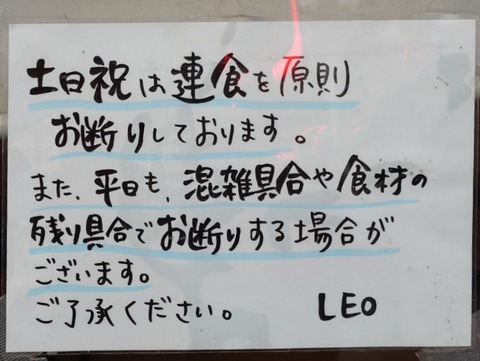 土日祝は連食を原則
お断りしております。
また、平日も、混雑具合や食材の
残り具合でお断りする場合が
ございます。
ご了承ください。 LEO